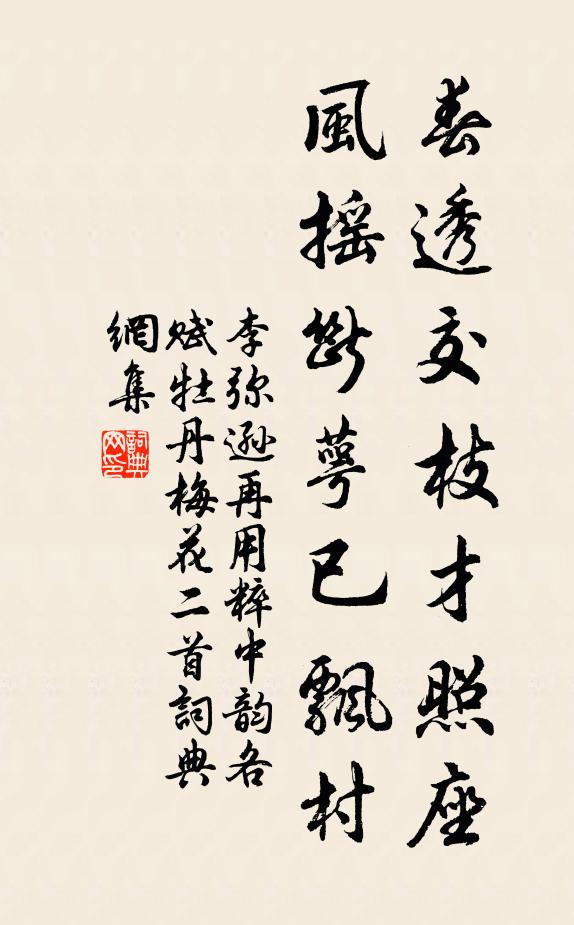 春透交枝才照座
風搖斷萼已飄村
李弥遜再用粹中韵各
賦牡丹梅花二首詞典
網集
詞典網印